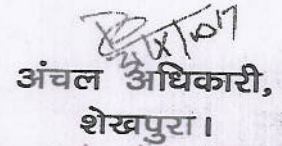 अंचल अधिकारी,
शेखपुरा।